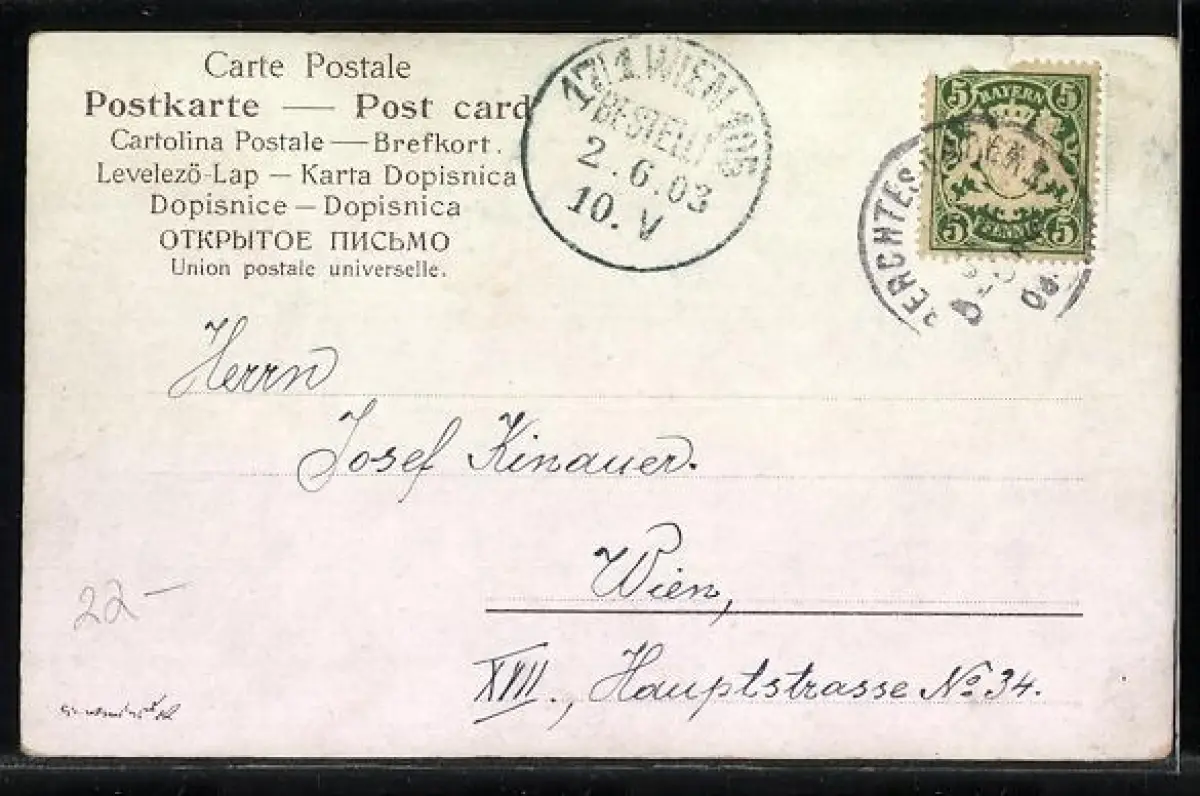 Carte Postale
Postkarte — Post card
Cartolina Postale — Brefkort.
Levelező-Lap — Karta Dopisnica
Dopisnice — Dopisnica
ОТКРЫТОЕ ПИСЬМО
Union postale universelle.
17/1 WIEN 105
BESTELLT
2.6.03
10. V
5 BAYERN 5
5 PFENNIG 5
BERCHTES
Herrn
Josef Kinauer.
Wien,
XVII., Hauptstrasse No 34.
22-